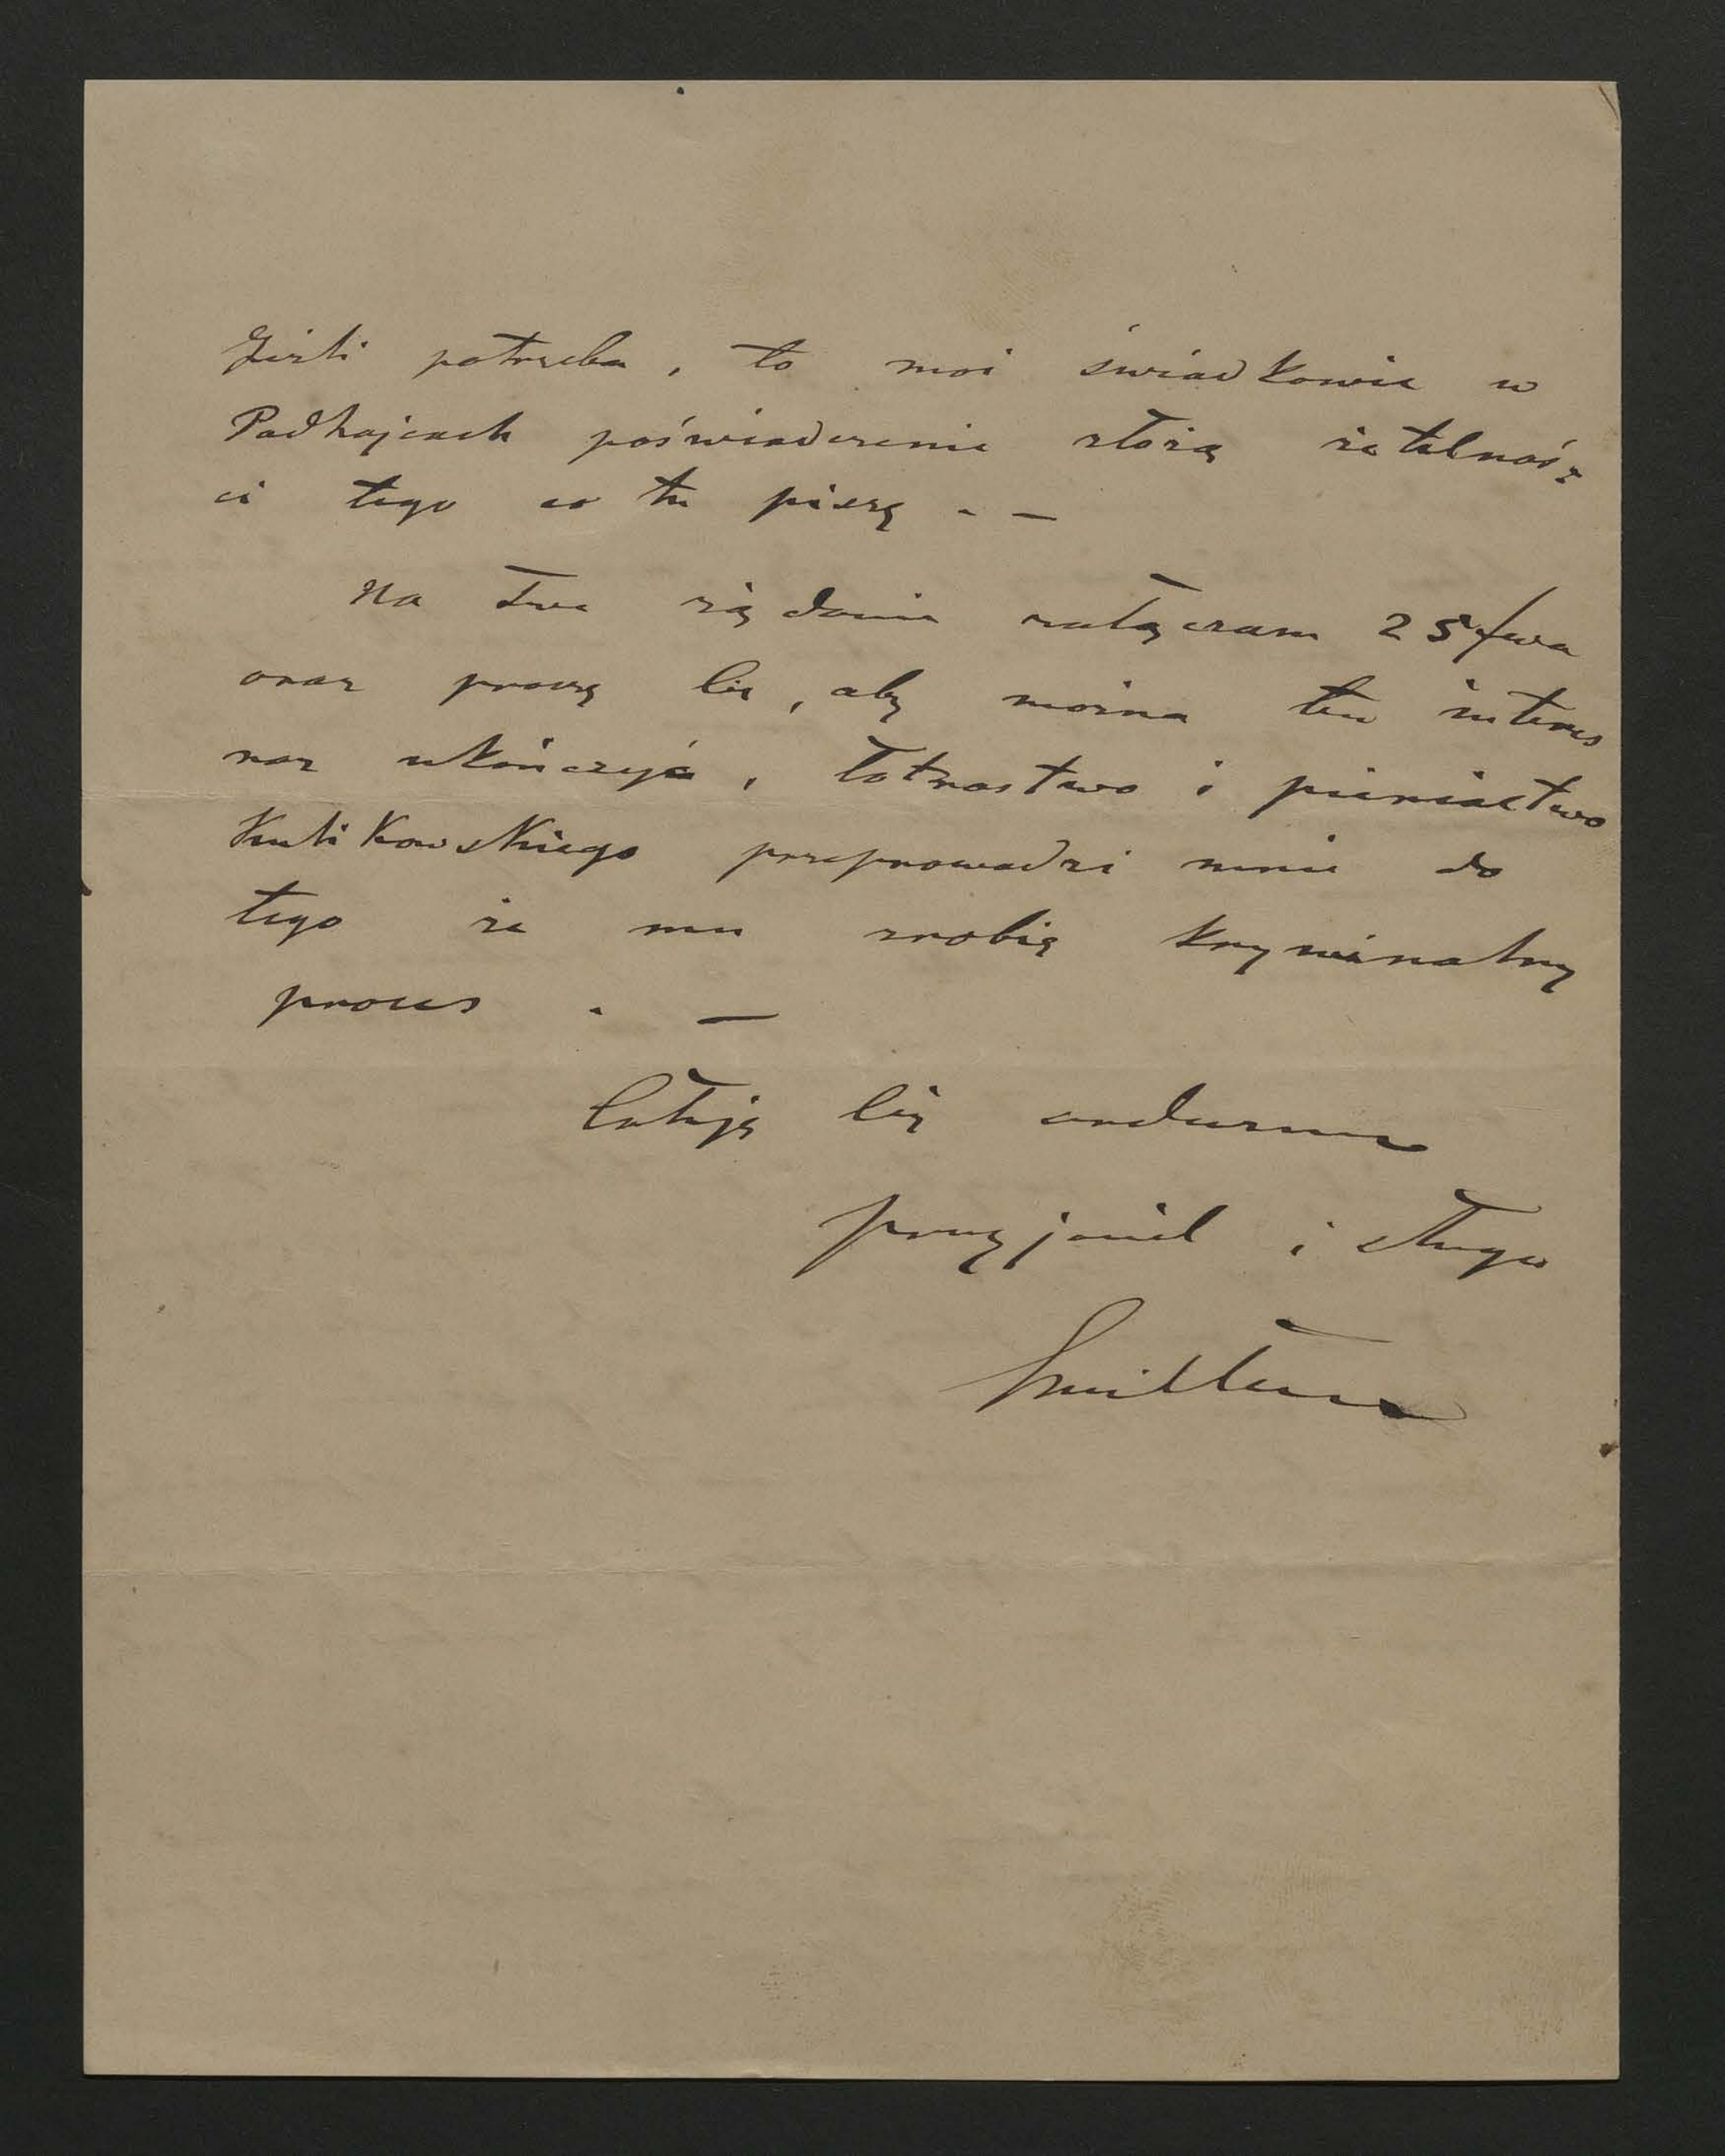 Jeżli potrzeba, to moi świadkowie w
Podhajcach poświadczenie złożą rzetelnoś=
ci tego co tu piszę . —
Na Twe żądanie załączam 25 fwa
oraz proszę Cię, aby można ten interes
raz ukończyć, łotrostwo i pieniactwo
Kulikowskiego przeprowadzi mnie do
tego że mu zrobię kryminalny
proces . —
Całuję Cię serdeczne
przyjaciel i sługa